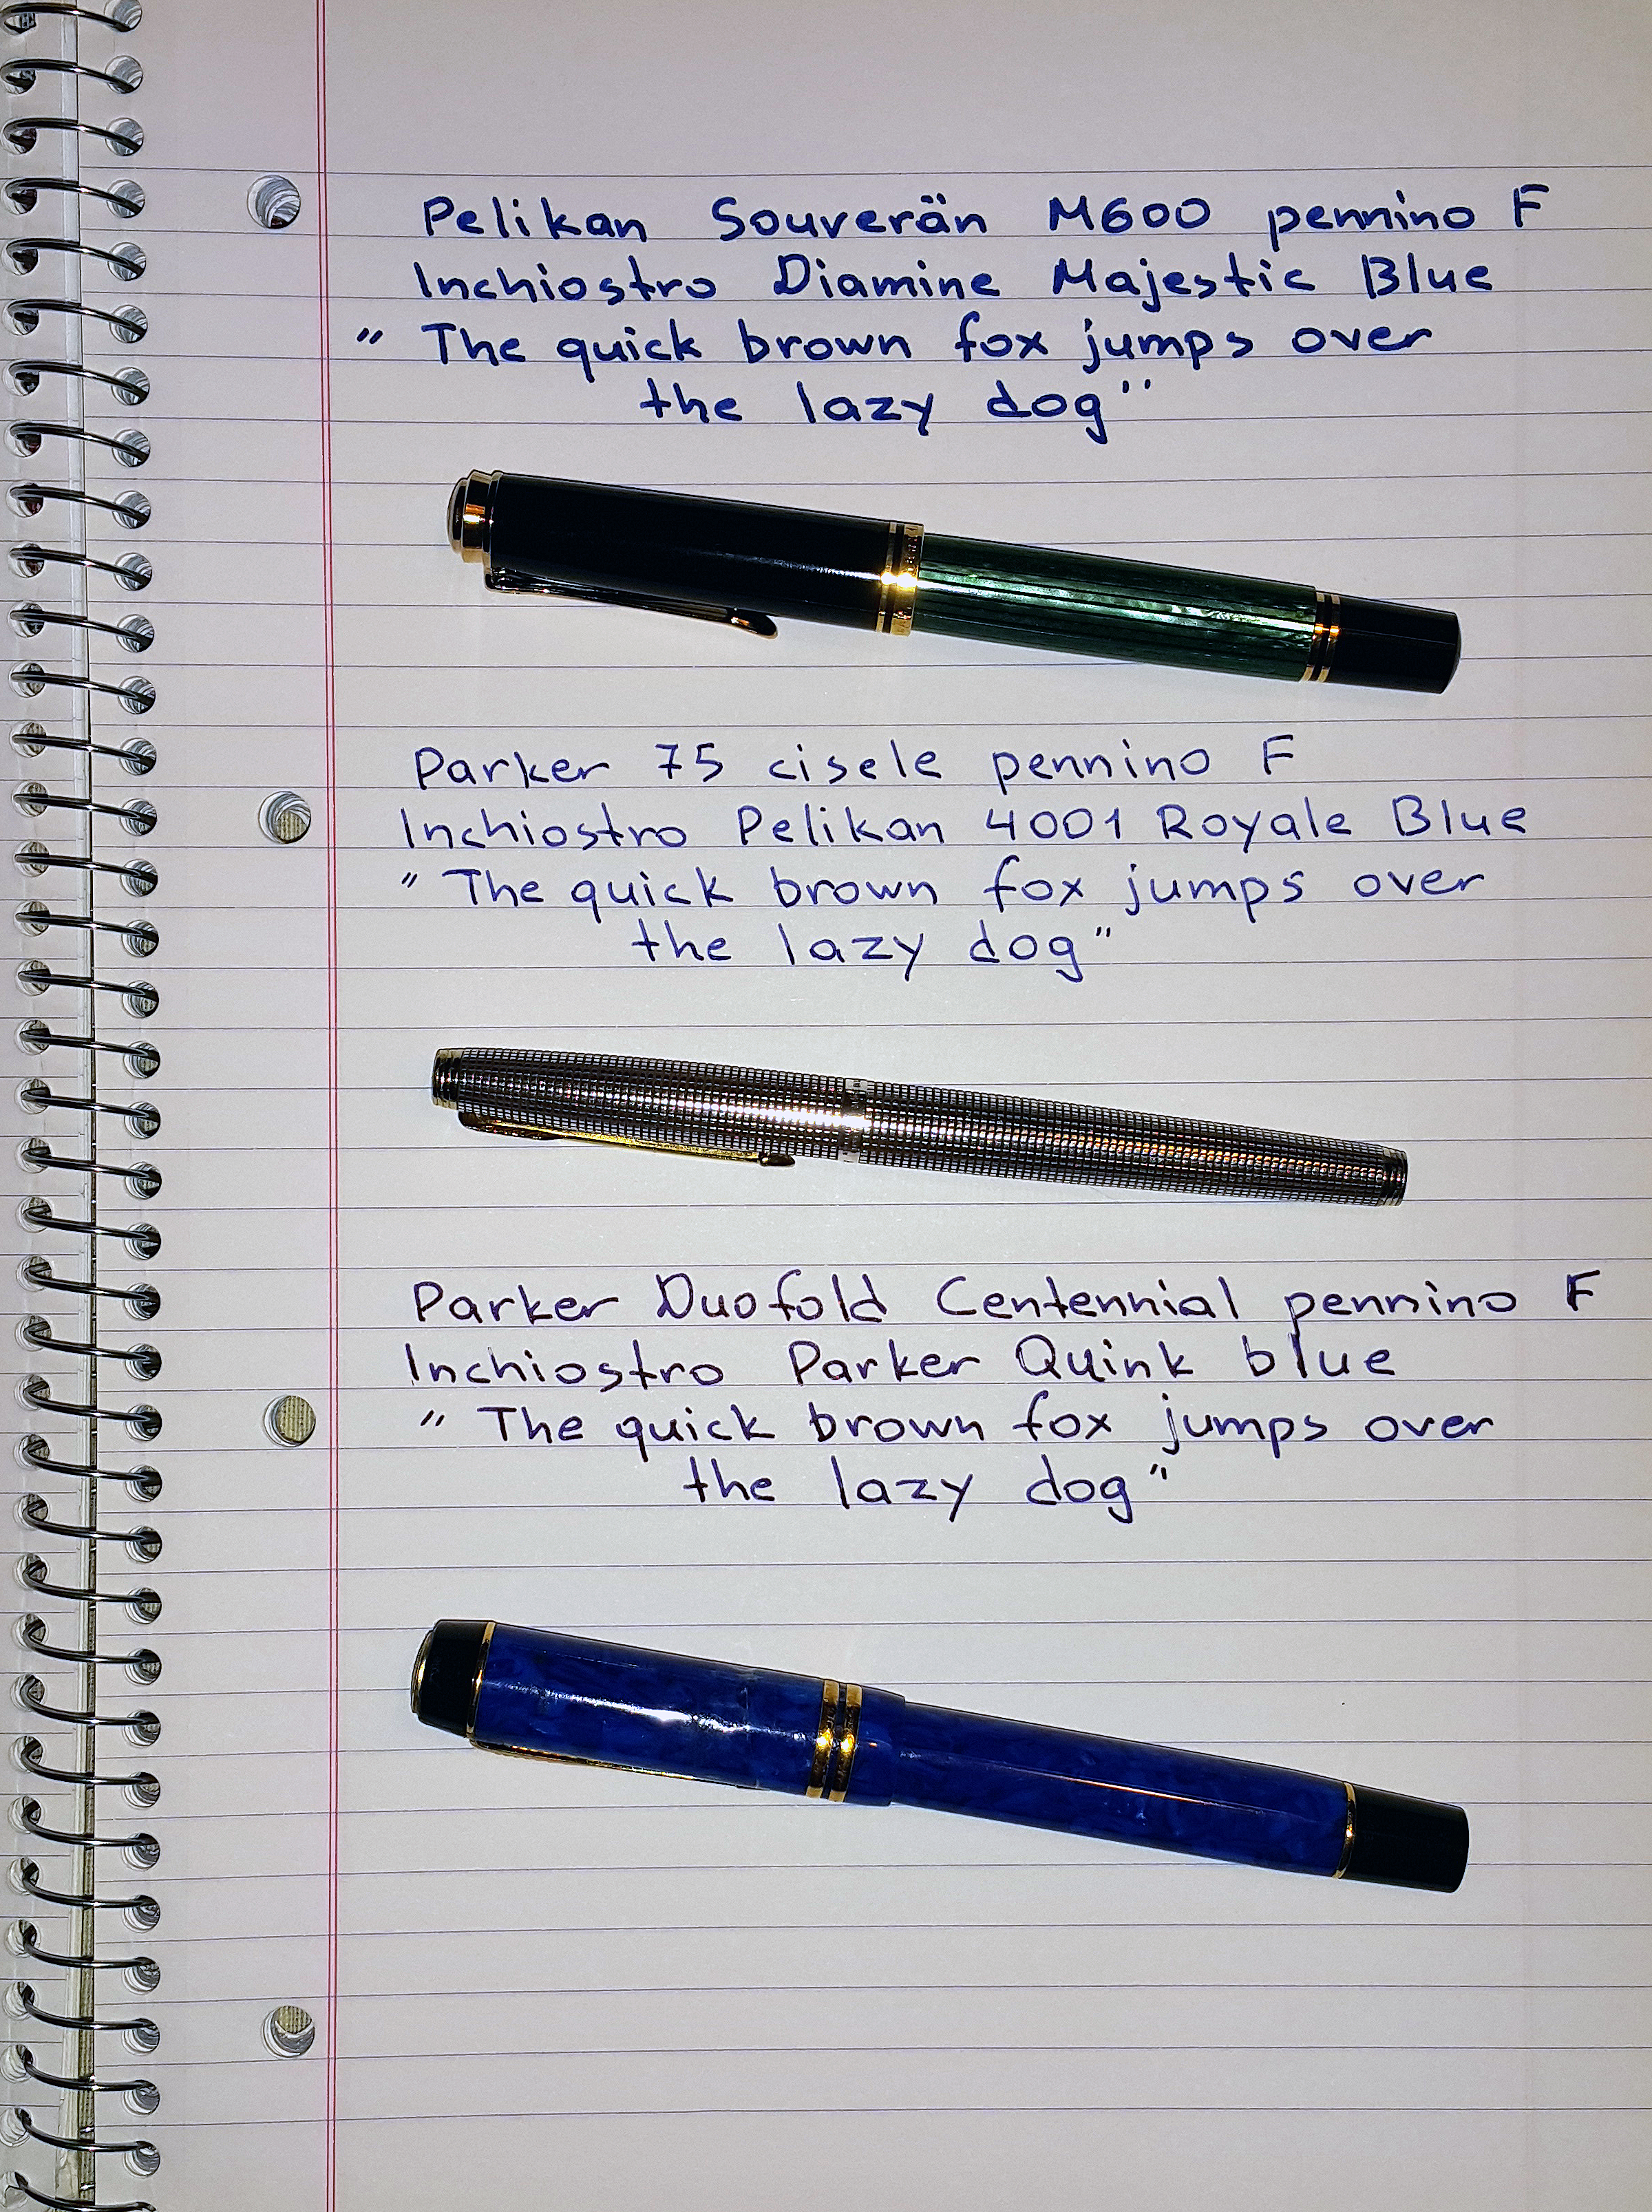 Pelikan Souverän M600 pennino F
Inchiostro Diamine Majestic Blue
" The quick brown fox jumps over
the lazy dog"
Parker 75 cisele pennino F
Inchiostro Pelikan 4001 Royale Blue
" The quick brown fox jumps over
the lazy dog"
Parker Duofold Centennial pennino F
Inchiostro Parker Quink blue
" The quick brown fox jumps over
the lazy dog"